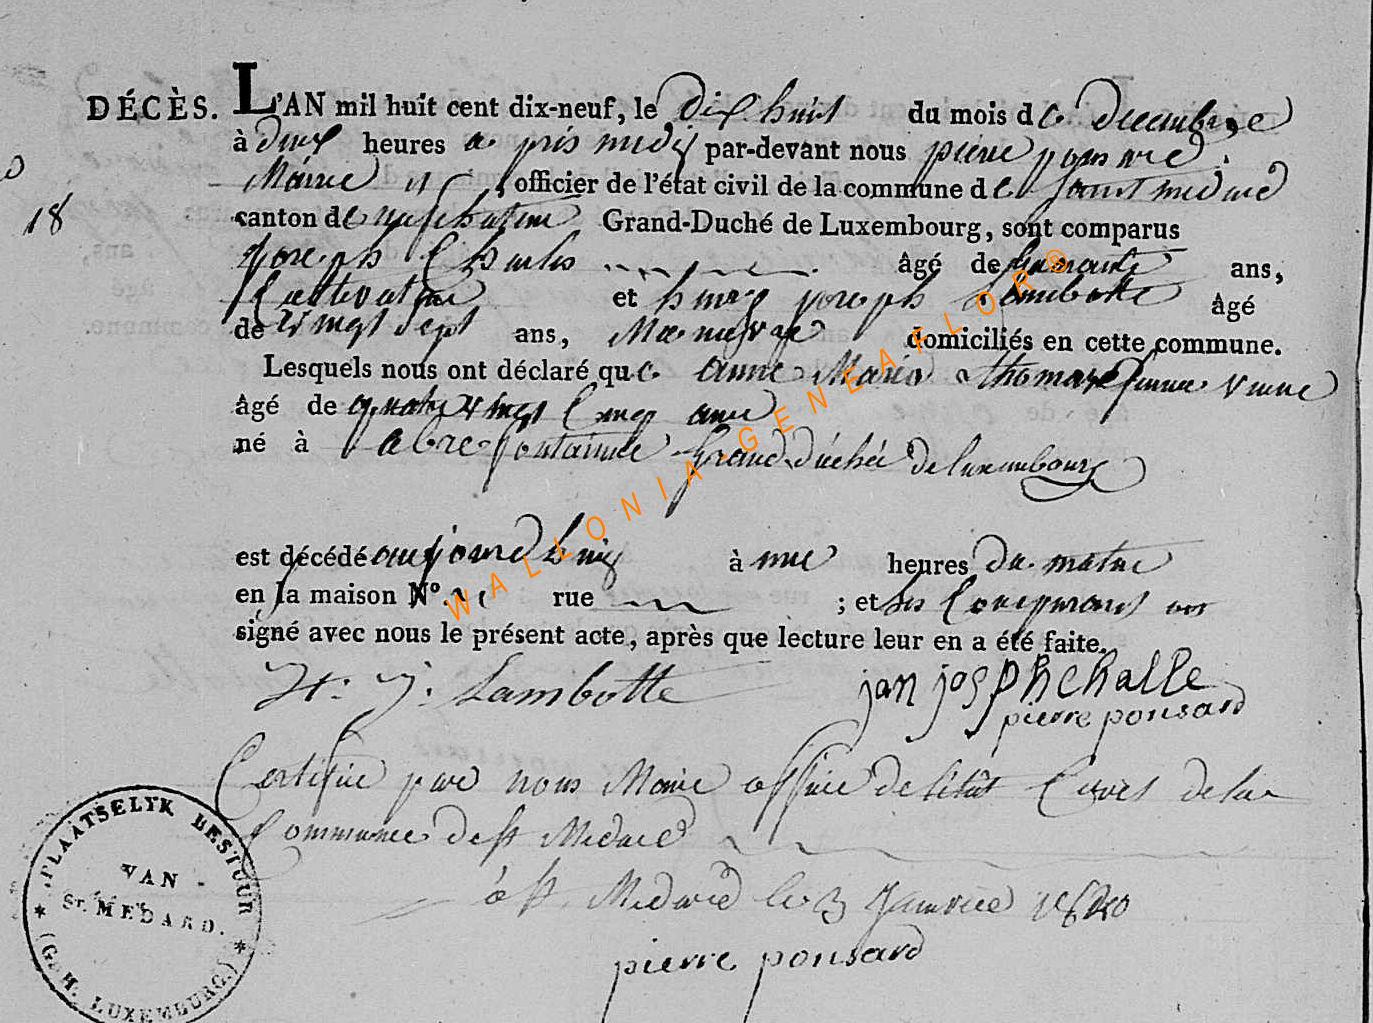 DÉCÈS. L'AN mil huit cent dix-neuf, le dix huit du mois de decembre
à deux heures a pris midy par-devant nous pierre ponsard
18
Maire et officier de l'état civil de la commune de saint medard
canton de neufchateau Grand-Duché de Luxembourg, sont comparus
joseph Charles âgé de ans,
Cultivateur et henry joseph Lambotte âgé
de vingt sept ans, domiciliés en cette commune.
Lesquels nous ont déclaré que anne Marie thomas femme veuve
âgé de quatre vingt cinq
né à abrefontaine Grand duchée de luxembourg
est décédé aujourd huy à une heures du matin
en la maison Nº. rue ; et les comparants ont
signé avec nous le présent acte, après que lecture leur en a été faite.
H: J: Lambotte jan josphchalle
pierre ponsard
Certifié par nous Maire officie de létat Civil de la
Commune de st Medard
à st Medard le 3 Janvier 1820
pierre ponsard
PLAATSELYK BESTUUR
VAN
ST. MEDARD.
(G. H. LUXEMBURG.)
WALLONIA-GENEAFLOR®